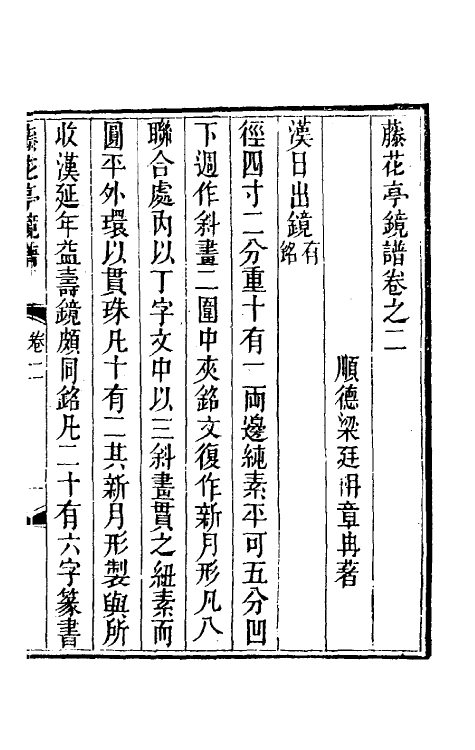 藤花亭鏡譜卷之二
順德梁廷冉章冉著
漢日出鏡有銘
徑四寸二分重十有一兩邊純素平可五分凹
下週作斜畫二圍中夾銘文復作新月形凡八
聯合處內以丁字文中以三斜畫貫之紐素而
圓平外環以貫珠凡十有二其新月形製與所
收漢延年益壽鏡頗同銘凡二十有六字篆書
藤花亭鏡譜 卷二